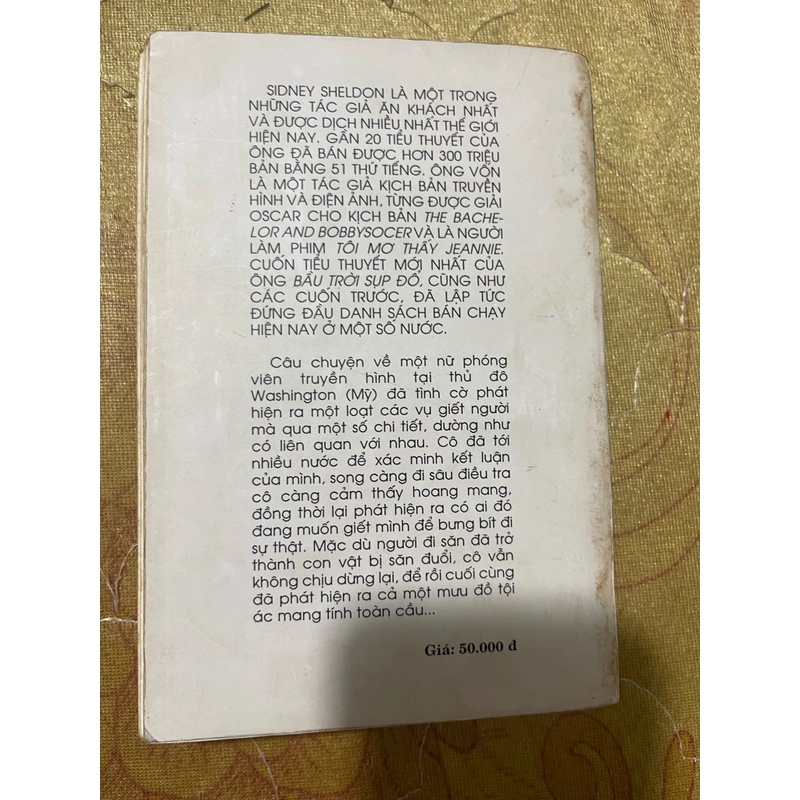 SIDNEY SHELDON LÀ MỘT TRONG
NHỮNG TÁC GIẢ ĂN KHÁCH NHẤT
VÀ ĐƯỢC DỊCH NHIỀU NHẤT THẾ GIỚI
HIỆN NAY. GẦN 20 TIỂU THUYẾT CỦA
ÔNG ĐÃ BÁN ĐƯỢC HƠN 300 TRIỆU
BẢN BẰNG 51 THỨ TIẾNG. ÔNG VỐN
LÀ MỘT TÁC GIẢ KỊCH BẢN TRUYỀN
HÌNH VÀ ĐIỆN ẢNH, TỪNG ĐƯỢC GIẢI
OSCAR CHO KỊCH BẢN THE BACHE-
LOR AND BOBBYSOCER VÀ LÀ NGƯỜI
LÀM PHIM TÔI MƠ THẤY JEANNIE.
CUỐN TIỂU THUYẾT MỚI NHẤT CỦA
ÔNG BẦU TRỜI SỤP ĐỔ, CŨNG NHƯ
CÁC CUỐN TRƯỚC, ĐÃ LẬP TỨC
ĐỨNG ĐẦU DANH SÁCH BÁN CHẠY
HIỆN NAY Ở MỘT SỐ NƯỚC.
Câu chuyện về một nữ phóng
viên truyền hình tại thủ đô
Washington (Mỹ) đã tình cờ phát
hiện ra một loạt các vụ giết người
mà qua một số chi tiết, dường như
có liên quan với nhau. Cô đã tới
nhiều nước để xác minh kết luận
của mình, song càng đi sâu điều tra
cô càng cảm thấy hoang mang,
đồng thời lại phát hiện ra có ai đó
đang muốn giết mình để bưng bít đi
sự thật. Mặc dù người đi săn đã trở
thành con vật bị săn đuổi, cô vẫn
không chịu dừng lại, để rồi cuối cùng
đã phát hiện ra cả một mưu đồ tội
ác mang tính toàn cầu...
Giá: 50.000 đ